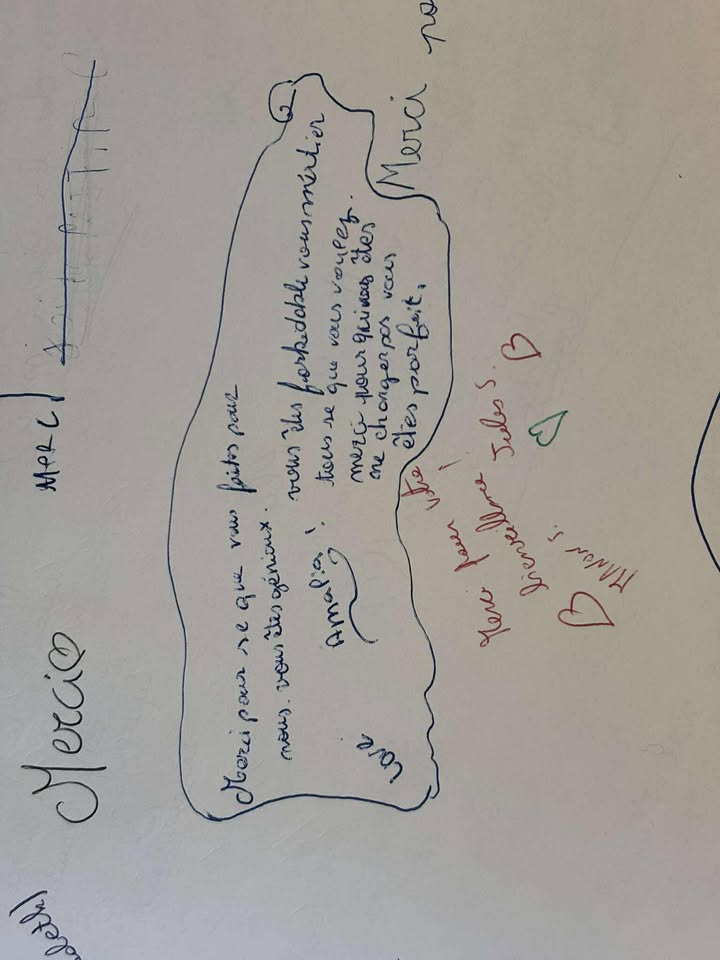 Merci
MERCI
Merci pour se que vous faites pour
nous. vous êtes géniaux.
vous êtes formidable vous méritier
tous se que vous voulez.
merci pour qui vous êtes
ne changer pas vous
êtes parfait.
Amalia !
Merci
Merci pour votre
bienveillance !
Jules S.
MANON S.